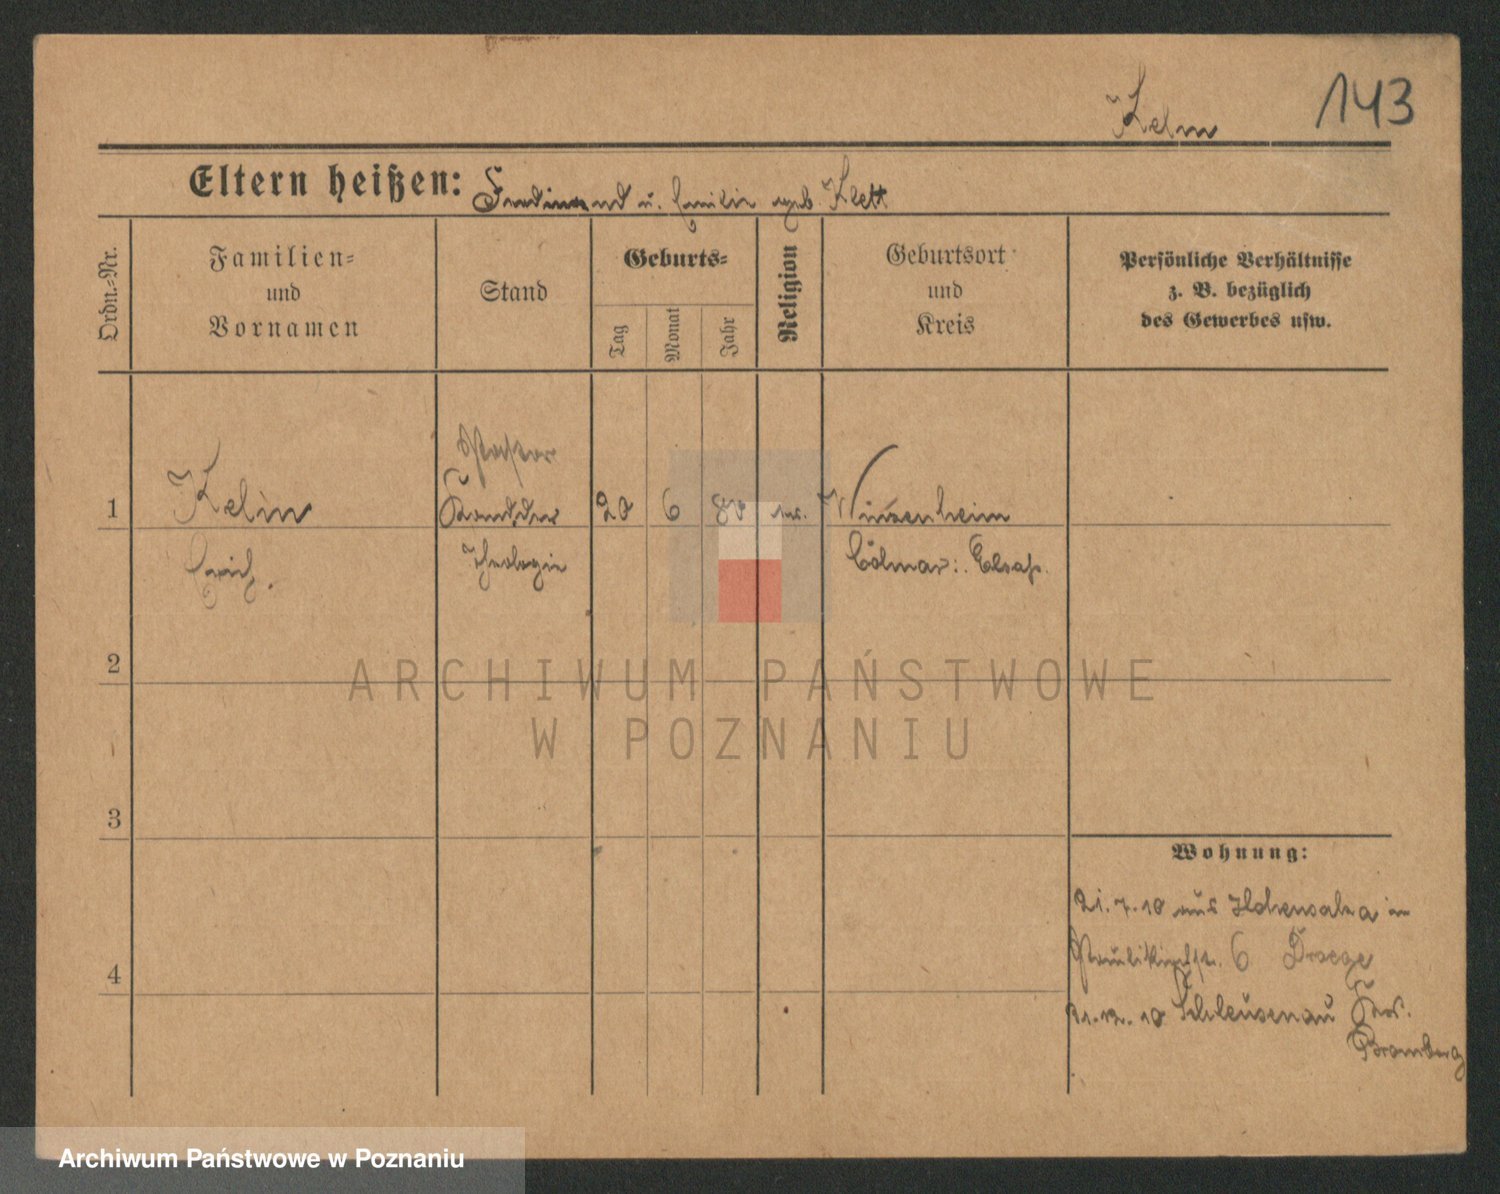 Kelm
143
Eltern heißen: Ferdinand u. Emilie geb Klett
Ordn.-Nr.
Familien-
und
Vornamen
Stand
Geburts-
Tag
Monat
Jahr
Religion
Geburtsort
und
Kreis
Persönliche Verhältnisse
z. B. bezüglich
des Gewerbes usw.
Pastor
1
Kelm
Kand. der
20
6
80
ev.
Winzenheim
Erich.
Theologie
Colmar i. Elsaß.
2
ARCHIWUM PAŃSTWOWE
W POZNANIU
3
Wohnung:
21.7.10 aus Hohensalza in
Paulikirchstr. 6 Draege
4
21.12.10 Schleusenau Krs.
Bromberg
Archiwum Państwowe w Poznaniu